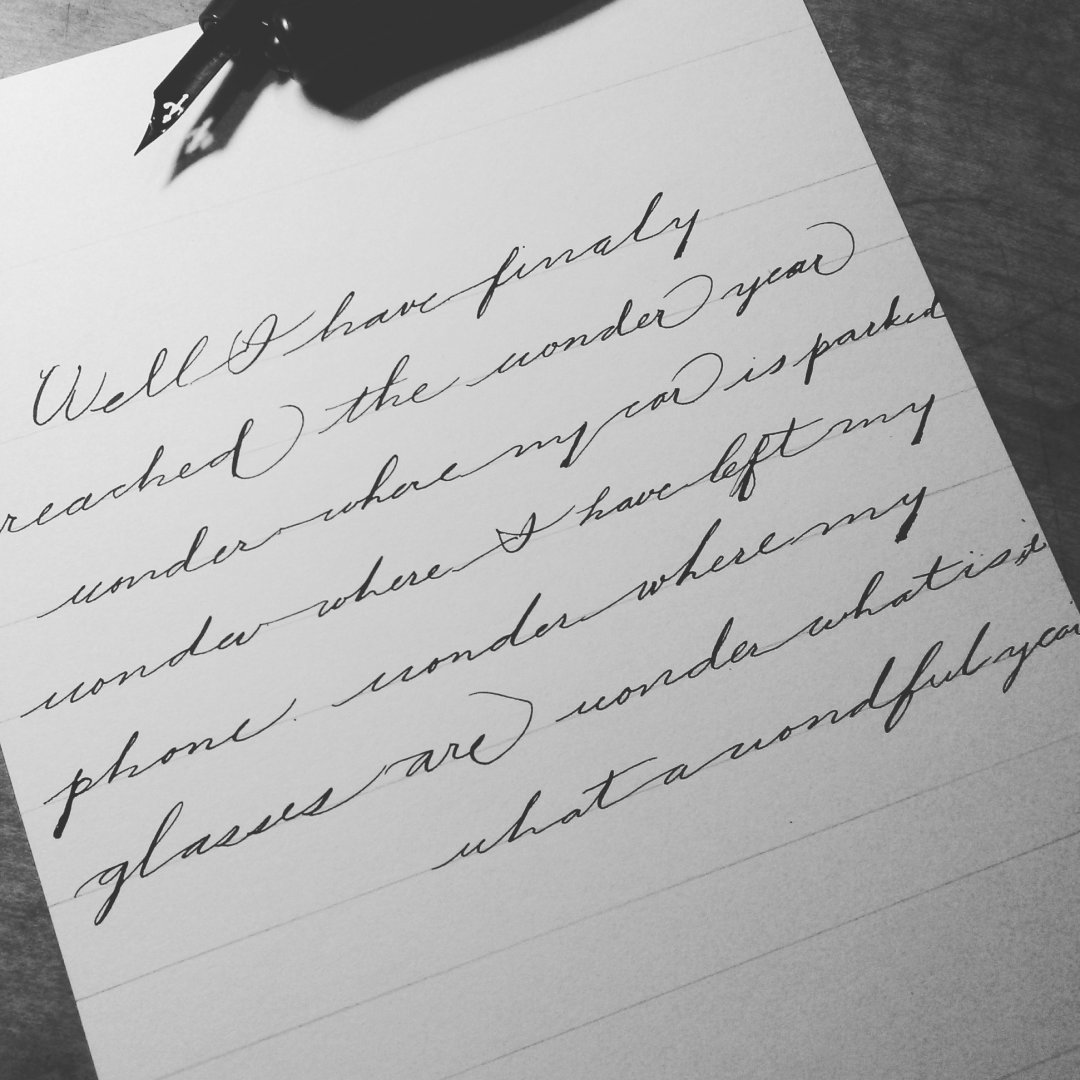 Well I have finaly
reached the wonder year
wonder where my car is parked
wonder where I have left my
phone wonder where my
glasses are wonder what is it
what a wondful year